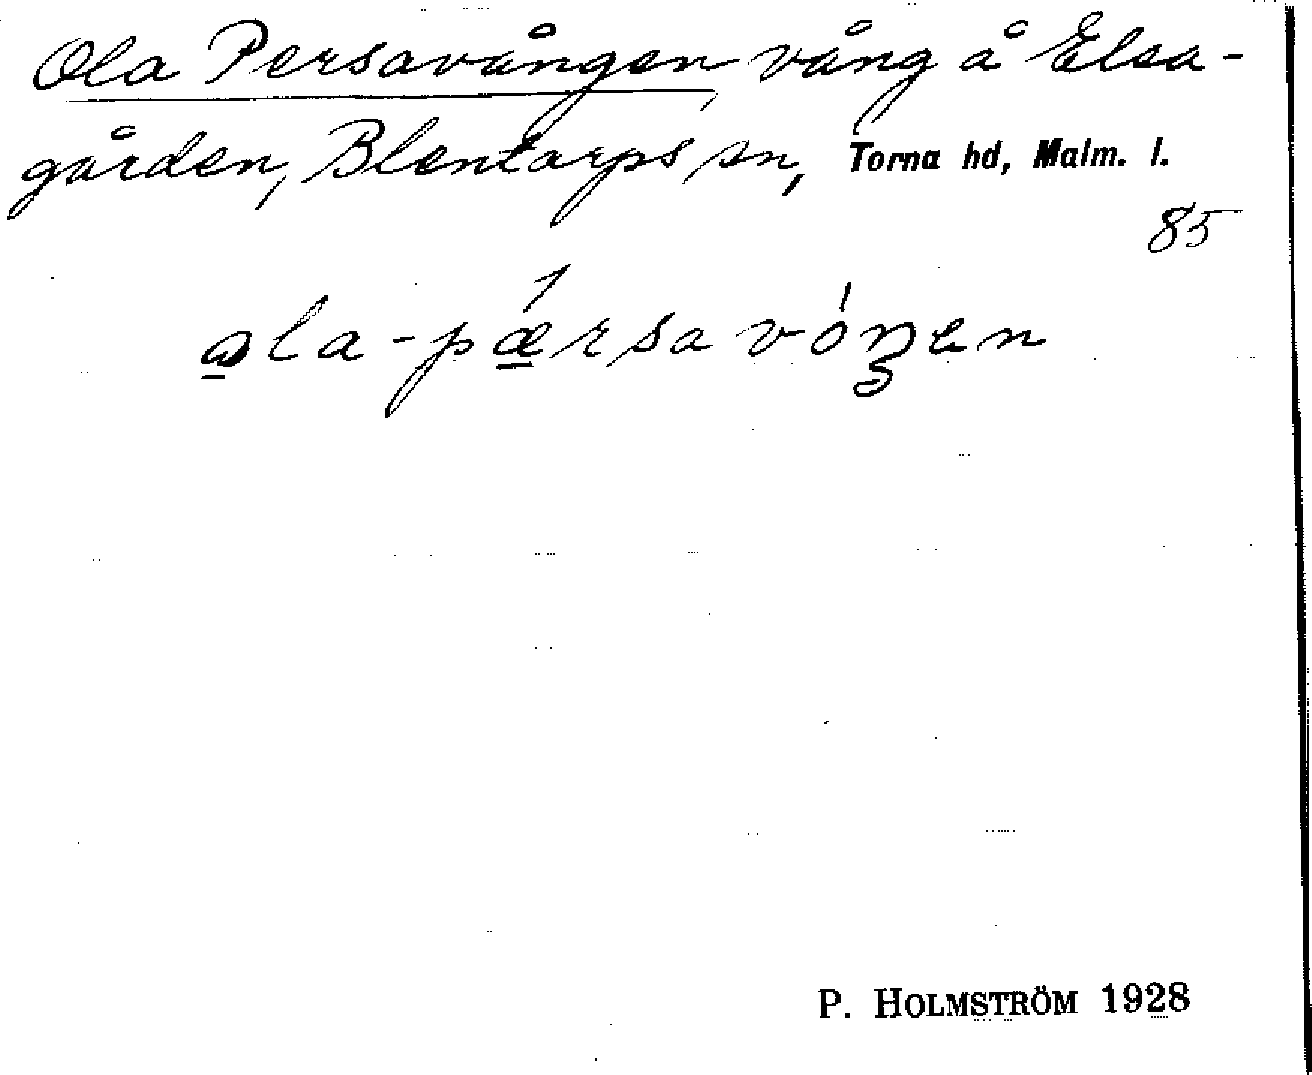 Ola Persavången vång å Elsa-
gården, Blentarps sn, Torna hd, Malm. l.
85
ola-pǽrsavóŋen
P. HOLMSTRÖM 1928